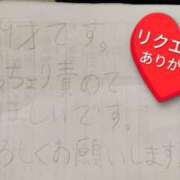 才です。
ちょり責めて
ほしいです。
ろしくお願いします
リクエ
ありか